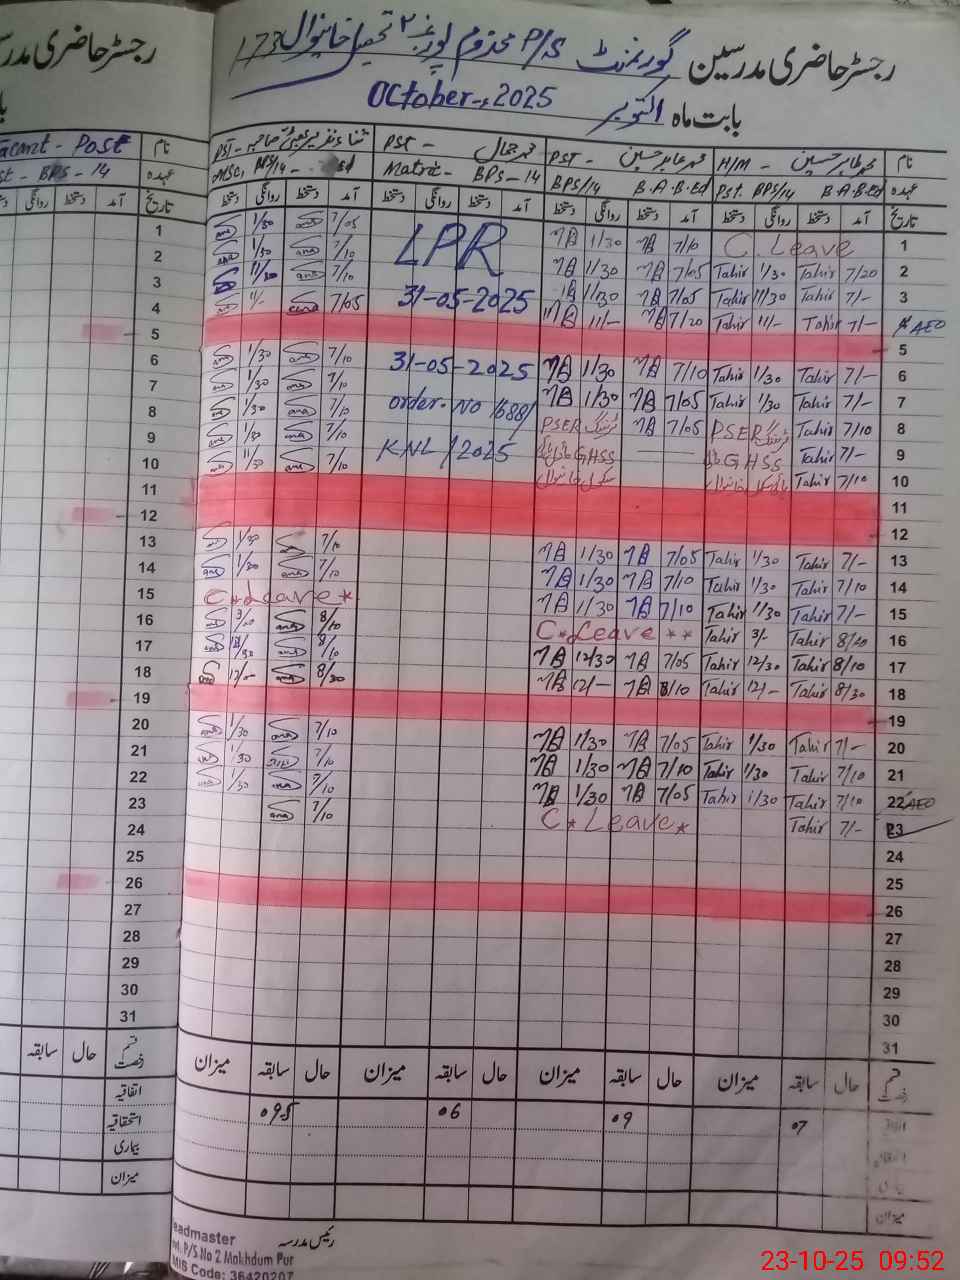 رجسٹر حاضری مدرسین گورنمنٹ P/S مخدوم پور نمبر ۲ تحصیل خانیوال 173
بابت ماہ اکتوبر October-, 2025
نام
محمد طاہر حسین H/M -
محمد عابد حسین PST -
محمد جمال PST -
PST -
عہدہ
B.A.B.Ed Pst. BPS/14
B.A.B.Ed BPS/14
Matric - BPS-14
MSc, BPS/14 -
تاریخ آمد دستخط روانگی دستخط آمد دستخط روانگی دستخط آمد دستخط روانگی دستخط آمد دستخط روانگی دستخط
1 C. Leave 7/10 1/30 7/05 1/30
LPR
2 Tahir 7/20 Tahir 1/30 7/05 1/30 7/10 1/30
3 Tahir 7/- Tahir 11/30 7/05 11/30 7/10 11/30
31-05-2025
4 AEO Tahir 7/- Tahir 11/- 7/20 11/- 7/05 11/-
5
6 Tahir 7/- Tahir 1/30 7/10 1/30 7/10 1/30
31-05-2025
7 Tahir 7/- Tahir 1/30 7/05 1/30 7/10 1/30
order. No 1688/
8 Tahir 7/10 PSER ٹریننگ 7/05 PSER ٹریننگ 7/10 1/30
9 Tahir 7/- GHSS GHSS 7/10 1/30
KNL/2025
10 Tahir 7/10 خانیوال خانیوال 7/10 11/30
11
12
13 Tahir 7/- Tahir 1/30 7/05 1/30 7/10 1/30
14 Tahir 7/10 Tahir 1/30 7/10 1/30 7/10 1/30
15 Tahir 7/- Tahir 1/30 7/10 11/30 C*Leave*
16 Tahir 8/20 Tahir 3/- C*Leave ** 8/10
17 Tahir 8/10 Tahir 12/30 7/05 12/30 8/10
18 Tahir 8/30 Tahir 12/- 8/10 12/- 8/30 12/-
19
20 Tahir 7/- Tahir 1/30 7/05 1/30 7/10 1/30
21 Tahir 7/10 Tahir 1/30 7/10 1/30 7/10 1/30
22 AEO Tahir 7/10 Tahir 1/30 7/05 1/30 7/10 1/30
23 Tahir 7/- C*Leave* 7/10
24
25
26
27
28
29
30
31
قسم رخصت حال سابقہ میزان حال سابقہ میزان حال سابقہ میزان حال سابقہ میزان
07 09 06 09
میزان
رئیس مدرسہ
eadmaster
P/S No 2 Makhdum Pur
MIS Code: 36420207
رجسٹر حاضری مدرسین
Vacant - Post
نام
BPS - 14
عہدہ
تاریخ آمد دستخط روانگی
1
2
3
4
5
6
7
8
9
10
11
12
13
14
15
16
17
18
19
20
21
22
23
24
25
26
27
28
29
30
31
قسم رخصت حال سابقہ
اتفاقیہ
استحقاقیہ
بیماری
میزان
23-10-25 09:52